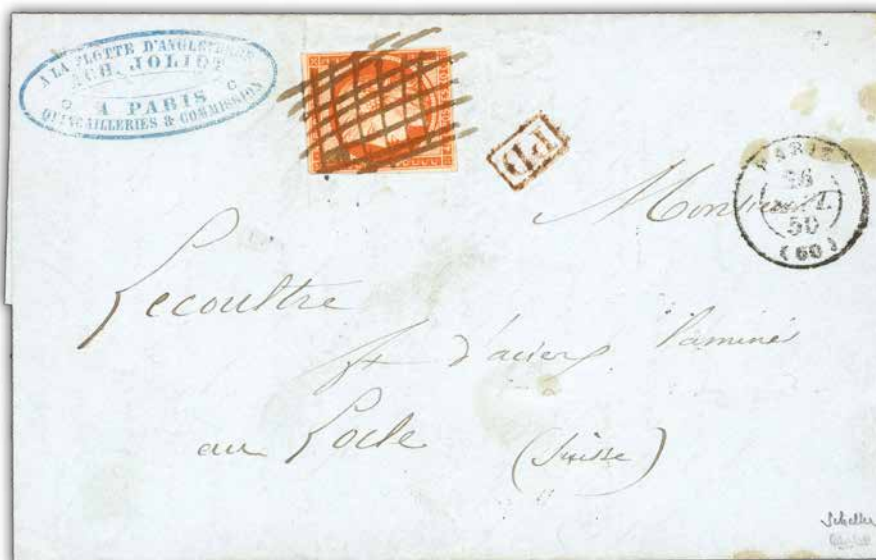 A LA FLOTTE D'ANGLETERRE
ACH. JOLIOT
A PARIS
QUINCAILLERIES & COMMISSION
PD
PARIS
50
(60)
Monsieur
Lecoultre
ft d'aciers laminés
au Locle (Suisse)
Scheller